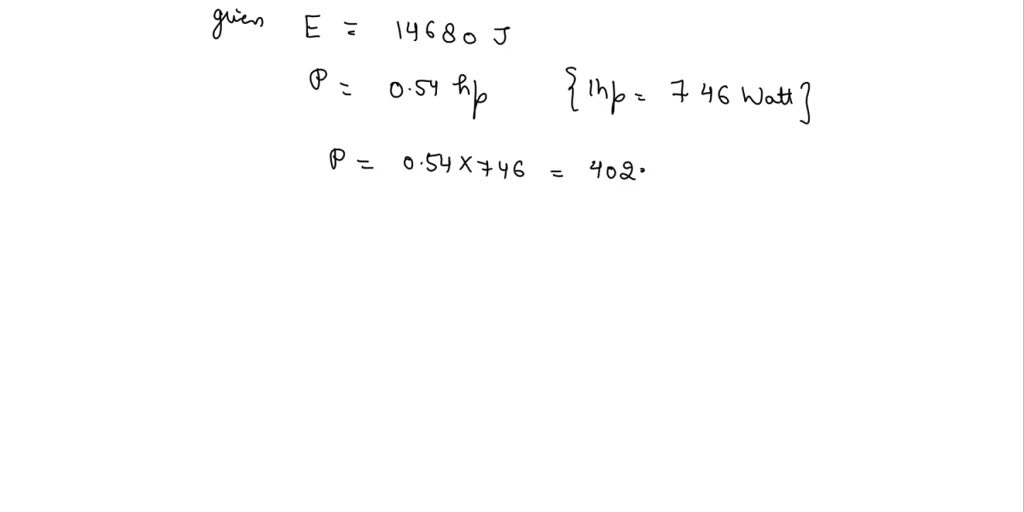 given E = 14680 J
P = 0.54 hp {1hp = 746 Watt}
P = 0.54 x 746 = 402.